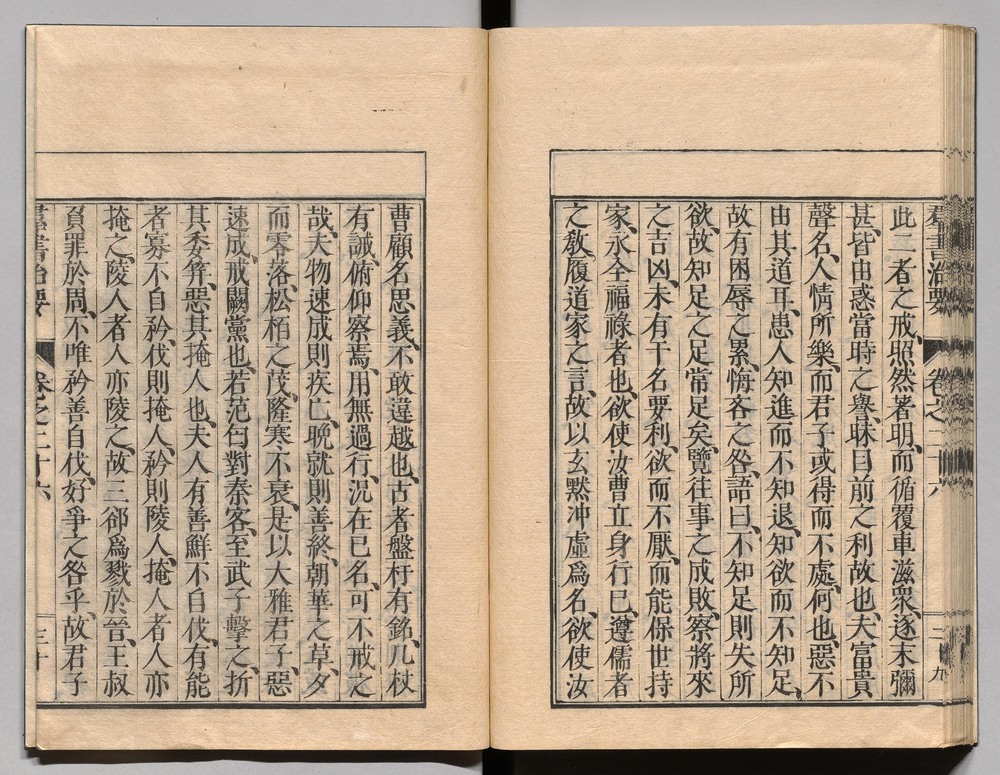 羣書治要 卷之二十六 二十九
此二者之戒、照然著明、而循覆車滋衆、逐末彌
甚、皆由惑當時之譽、昧目前之利故也、夫富貴
聲名、人情所樂、而君子或得而不處、何也、惡不
由其道耳、患人知進而不知退、知欲而不知足、
故有困辱之累、悔吝之咎、語曰、不知足則失所
欲、故知足之足常足矣、覽往事之成敗、察將來
之吉凶、未有干名要利、欲而不厭、而能保世持
家、永全福祿者也、欲使汝曹立身行己、遵儒者
之敎、履道家之言、故以玄默冲虛爲名、欲使汝
曹顧名思義、不敢違越也、古者盤杅有銘、几杖
有誡、俯仰察焉、用無過行、況在己名、可不戒之
哉、夫物速成則疾亡、晩就則善終、朝華之草、夕
而零落、松栢之茂、隆寒不衰、是以大雅君子、惡
速成、戒闕黨也、若范匄對秦客、至武子擊之、折
其委笄、惡其掩人也、夫人有善鮮不自伐、有能
者寡不自矜、伐則掩人、矜則陵人、掩人者人亦
掩之、陵人者人亦陵之、故三郤爲戮於晉、王叔
負罪於周、不唯矜善自伐、好爭之咎乎、故君子
羣書治要 卷之二十六 三十